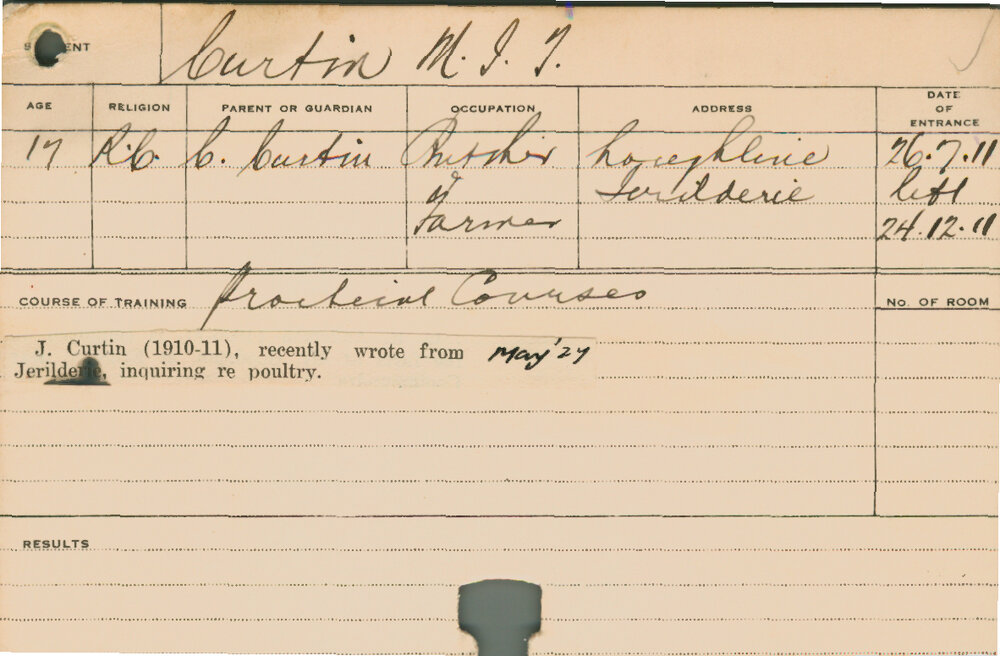 STUDENT Curtin M. J. J.
AGE RELIGION PARENT OR GUARDIAN OCCUPATION ADDRESS DATE OF ENTRANCE
17 R.C. C. Curtin Butcher Loughline 26.7.11
& Jerilderie left
Farmer 24.12.11
COURSE OF TRAINING Practical Courses No. OF ROOM
J. Curtin (1910-11), recently wrote from May '27
Jerilderie, inquiring re poultry.
RESULTS